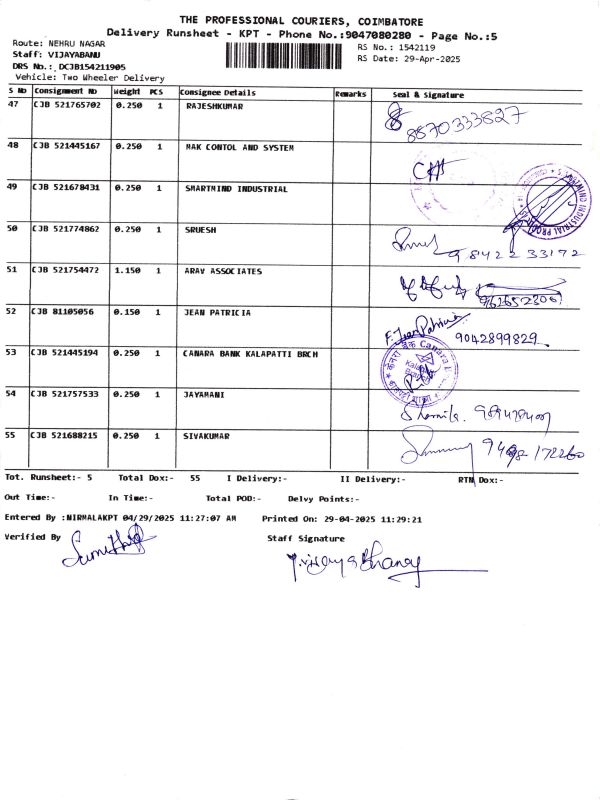 THE PROFESSIONAL COURIERS, COIMBATORE
Delivery Runsheet - KPT - Phone No.:9047080280 - Page No.:5
Route: NEHRU NAGAR
RS No.: 1542119
Staff: VIJAYABANU
RS Date: 29-Apr-2025
DRS No.: DCJB154211905
Vehicle: Two Wheeler Delivery
S No Consignment No Weight PCS Consignee Details Remarks Seal & Signature
47 CJB 521765702 0.250 1 RAJESHKUMAR 8870333827
48 CJB 521445167 0.250 1 MAK CONTOL AND SYSTEM
49 CJB 521678431 0.250 1 SMARTMIND INDUSTRIAL
50 CJB 521774862 0.250 1 SRUESH 9842233172
51 CJB 521754472 1.150 1 ARAV ASSOCIATES
52 CJB 81105056 0.150 1 JEAN PATRICIA F. Jean Patricia 9042899829
53 CJB 521445194 0.250 1 CANARA BANK KALAPATTI BRCH
54 CJB 521757533 0.250 1 JAYAMANI
55 CJB 521688215 0.250 1 SIVAKUMAR
Tot. Runsheet:- 5 Total Dox:- 55 I Delivery:- II Delivery:- RTN Dox:-
Out Time:- In Time:- Total POD:- Delvy Points:-
Entered By :NIRMALAKPT 04/29/2025 11:27:07 AM Printed On: 29-04-2025 11:29:21
Verified By Staff Signature